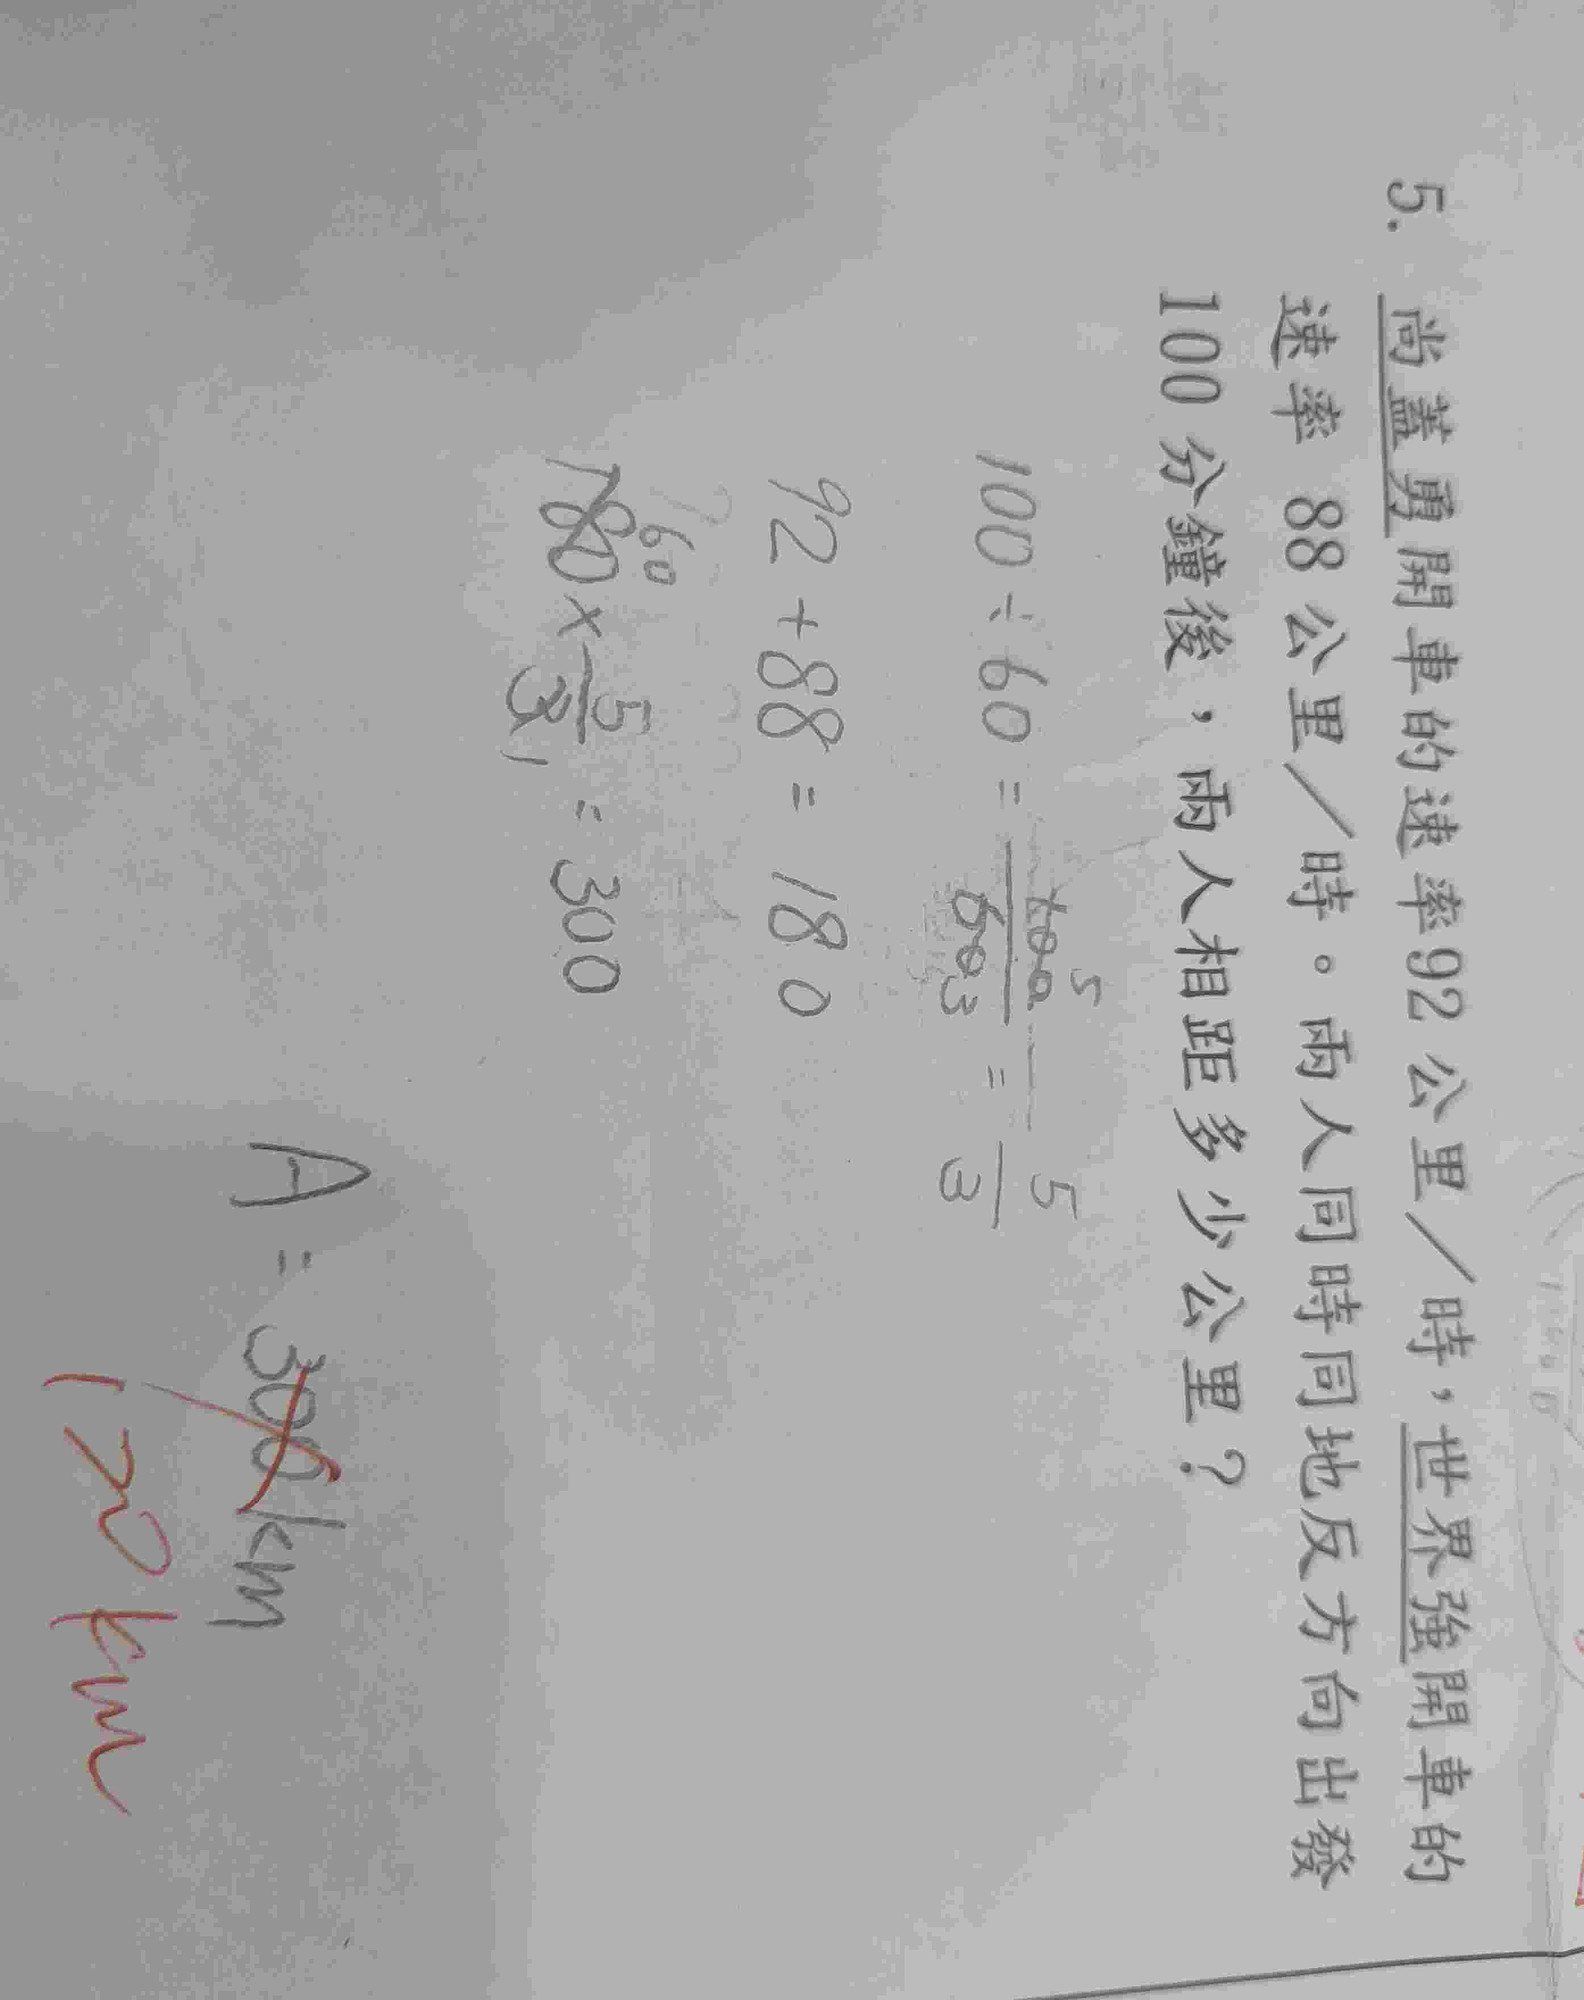 5. 尚蓋勇開車的速率92公里／時，世界強開車的
速率 88公里／時。兩人同時同地反方向出發
100分鐘後，兩人相距多少公里？
100÷60=100/60 5/3=5/3
92+88=180
60
180×5/3 1=300
A=300km
120km